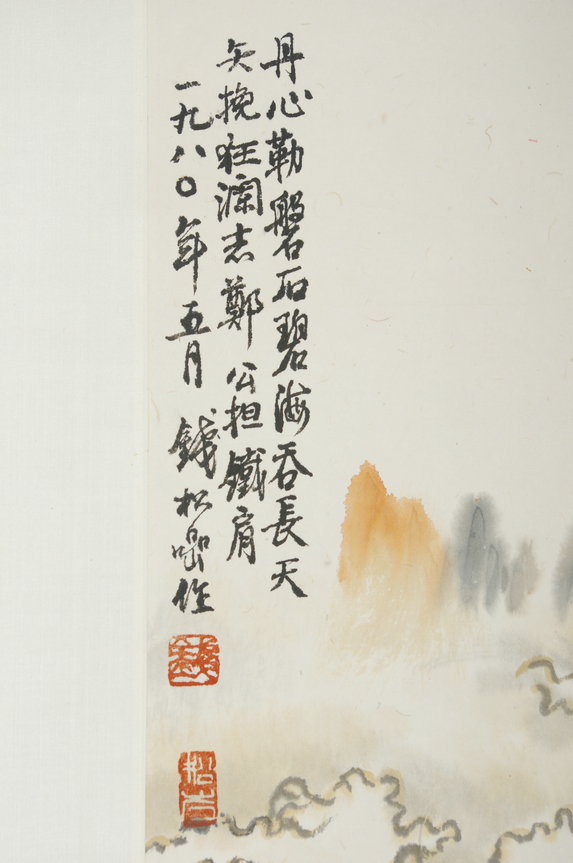 丹心勒磐石碧海吞長天
矢挽狂瀾志鄭公担鐵肩
一九八〇年五月 錢松喦作
錢
松喦